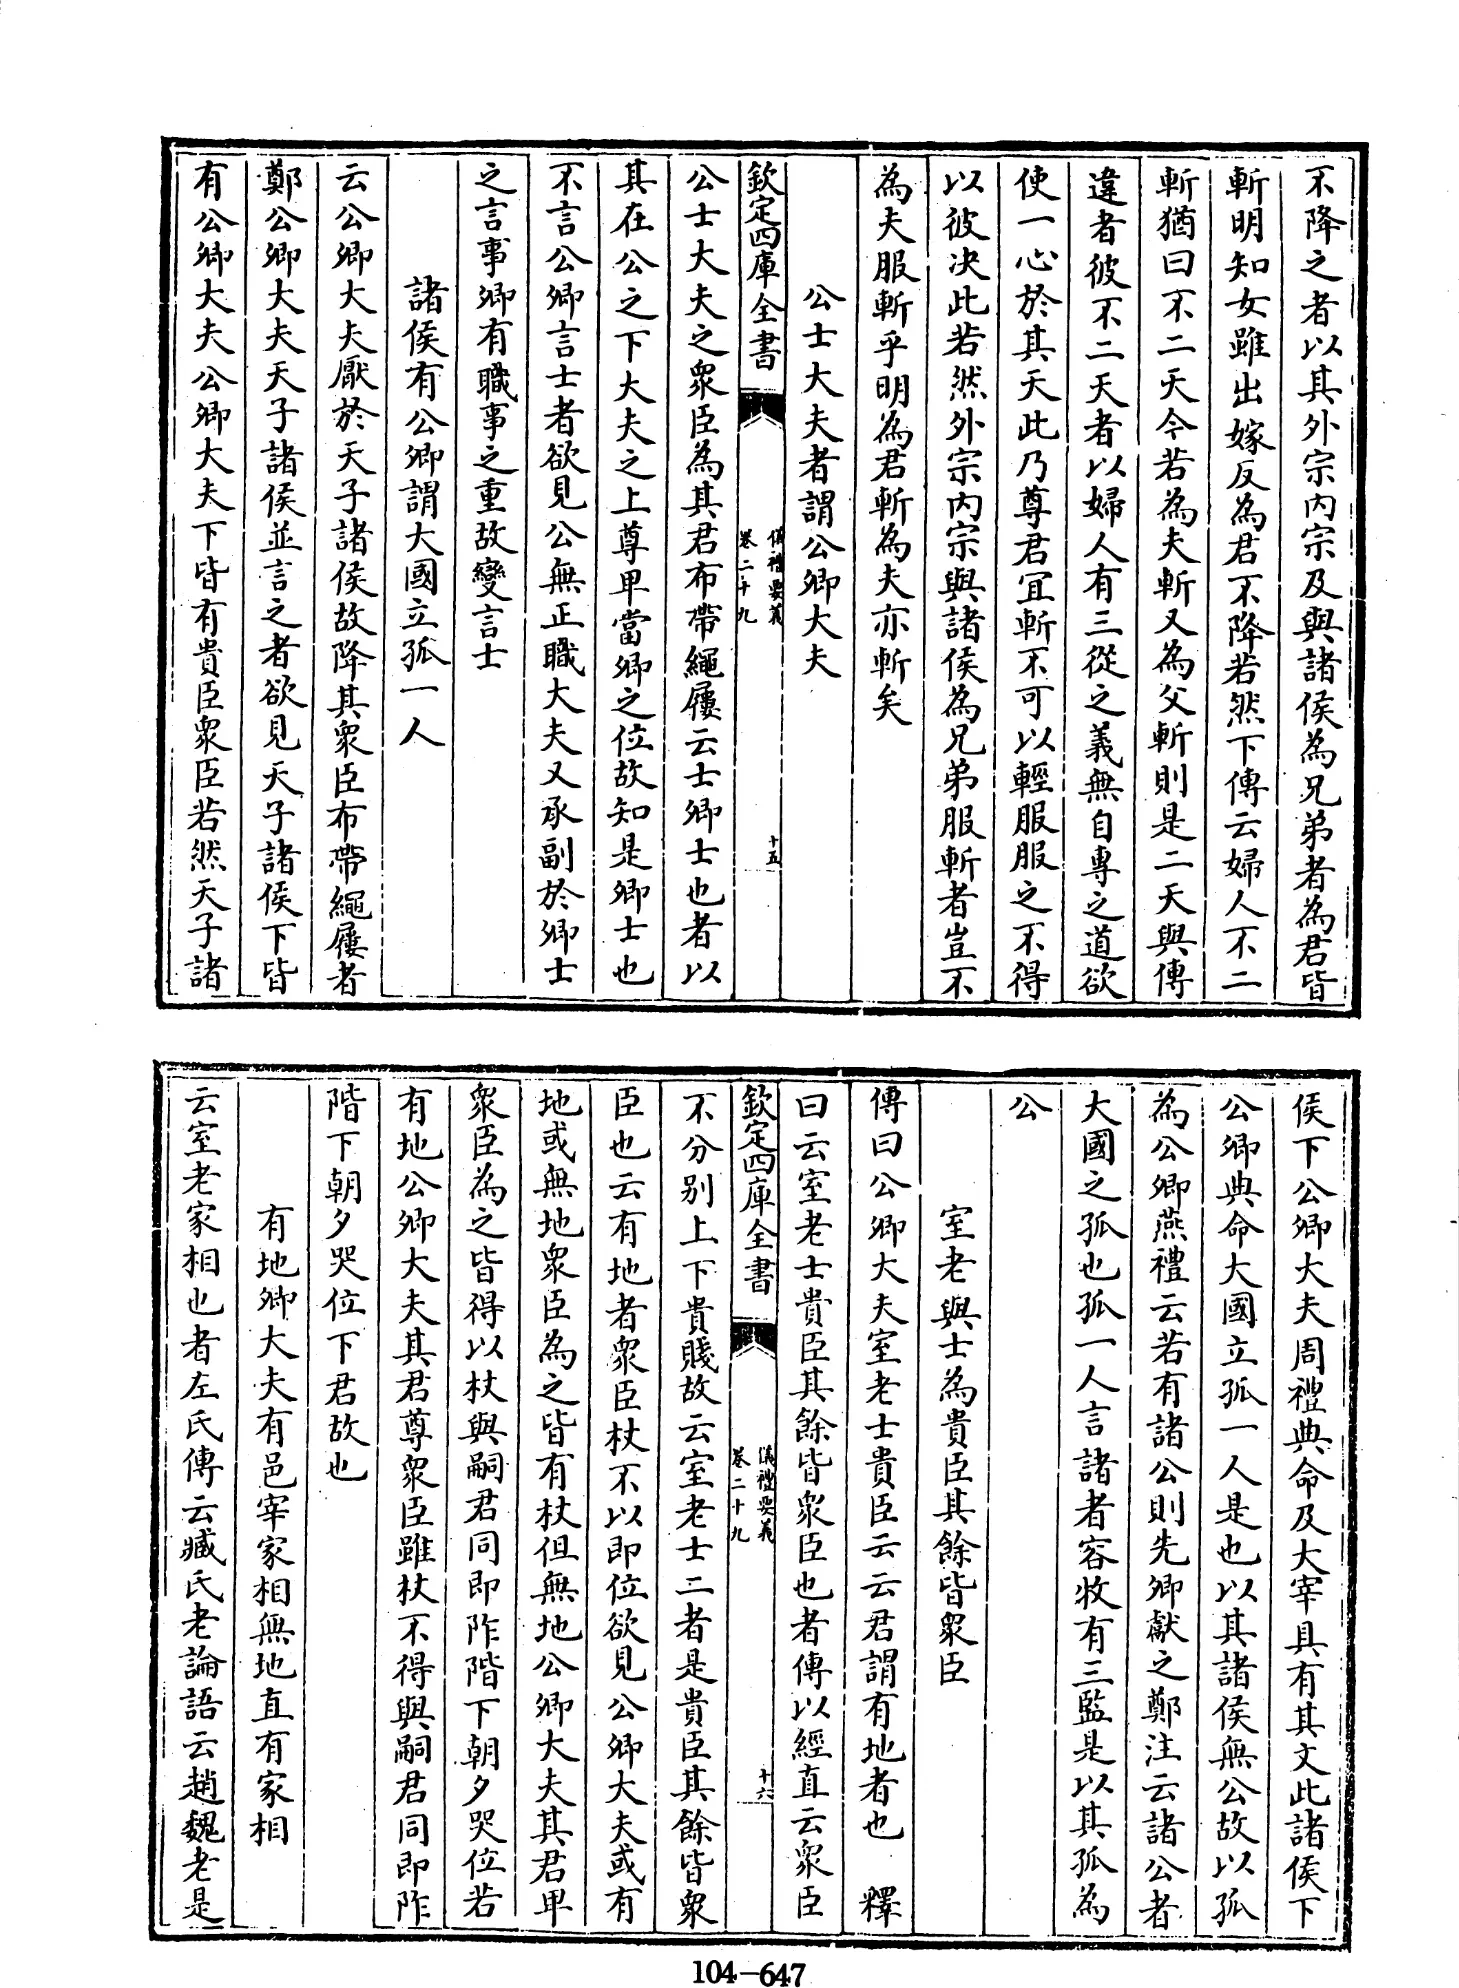 不降之者以其外宗内宗及與諸侯為兄弟者為君皆
斬明知女雖出嫁反為君不降若然下傳云婦人不二
斬猶曰不二天今若為夫斬又為父斬則是二天與傳
違者彼不二天者以婦人有三從之義無自專之道欲
使一心於其天此乃尊君宜斬不可以輕服服之不得
以彼決此若然外宗内宗與諸侯為兄弟服斬者豈不
為夫服斬乎明為君斬為夫亦斬矣
公士大夫者謂公卿大夫
欽定四庫全書
儀禮要義
卷二十九
十五
公士大夫之衆臣為其君布帶繩屨云士卿士也者以
其在公之下大夫之上尊卑當卿之位故知是卿士也
不言公卿言士者欲見公無正職大夫又承副於卿士
之言事卿有職事之重故變言士
諸侯有公卿謂大國立孤一人
云公卿大夫厭於天子諸侯故降其衆臣布帶繩屨者
鄭公卿大夫天子諸侯並言之者欲見天子諸侯下皆
有公卿大夫公卿大夫下皆有貴臣衆臣若然天子諸
侯下公卿大夫周禮典命及大宰具有其文此諸侯下
公卿典命大國立孤一人是也以其諸侯無公故以孤
為公卿燕禮云若有諸公則先卿獻之鄭注云諸公者
大國之孤也孤一人言諸者容牧有三監是以其孤為
公
室老與士為貴臣其餘皆衆臣
傳曰公卿大夫室老士貴臣云云君謂有地者也 釋
曰云室老士貴臣其餘皆衆臣也者傳以經直云衆臣
欽定四庫全書
儀禮要義
卷二十九
十六
不分别上下貴賤故云室老士二者是貴臣其餘皆衆
臣也云有地者衆臣杖不以即位欲見公卿大夫或有
地或無地衆臣為之皆有杖但無地公卿大夫其君卑
衆臣為之皆得以杖與嗣君同即阼階下朝夕哭位若
有地公卿大夫其君尊衆臣雖杖不得與嗣君同即阼
階下朝夕哭位下君故也
有地卿大夫有邑宰家相無地直有家相
云室老家相也者左氏傳云臧氏老論語云趙魏老是
104-647